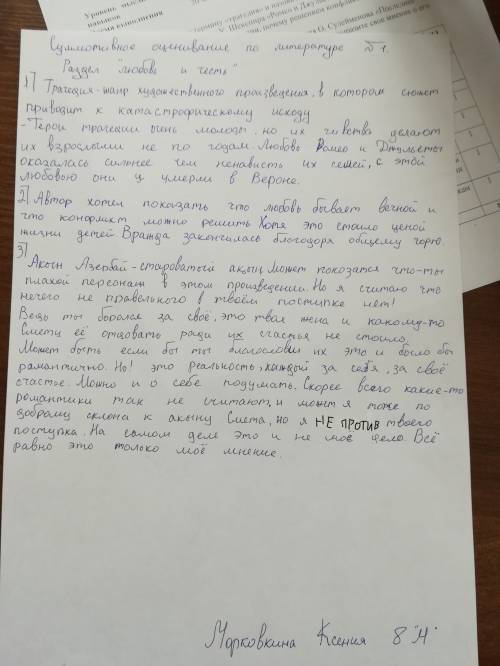 Уровень мысл
навыков
Время выполнения
Суммотивное оценивание по литературе №1.
Раздел "любовь и честь"
1) Трагедия-жанр художественного произведения, в котором сюжет
приводит к катастрофическому исходу
- Герои трагедии очень молоды, но их чувства делают
их взрослыми не по годам. Любовь Ромео и Джульеты
оказалась силнее чем ненависть их семей, с этой
любовью они и умерли в Вероне.
2) Автор хотел показать что любовь бывает вечной и
что конфликт можно решить Хотя это стоило ценой
жизни детей Вражда закончилась благодоря общему горю.
3)
Акын Азербай-староватый акын. Может показатся что-ты
плахой персонаж в этом произведении. Но я считаю что
нечего не правельного в твоём поступке нет!
Ведь ты боролся за своё, это твая жена и какому-то
Смету её отдовать ради их счастья не стоило.
Может быть если бы ты благословил их это и было бы
романтично. Но! это реальность, каждый за себя, за своё
счастье. Можно и о себе подумать. Скорее всего какие-то
романтики так не считают, и может я тоже по
доброму склона к акыну Смета, но я НЕ ПРОТИВ твоего
поступка. На самом деле это и не моё дело. Всё
равно это только моё мнение.
Морковкина Ксения 8 "Н"